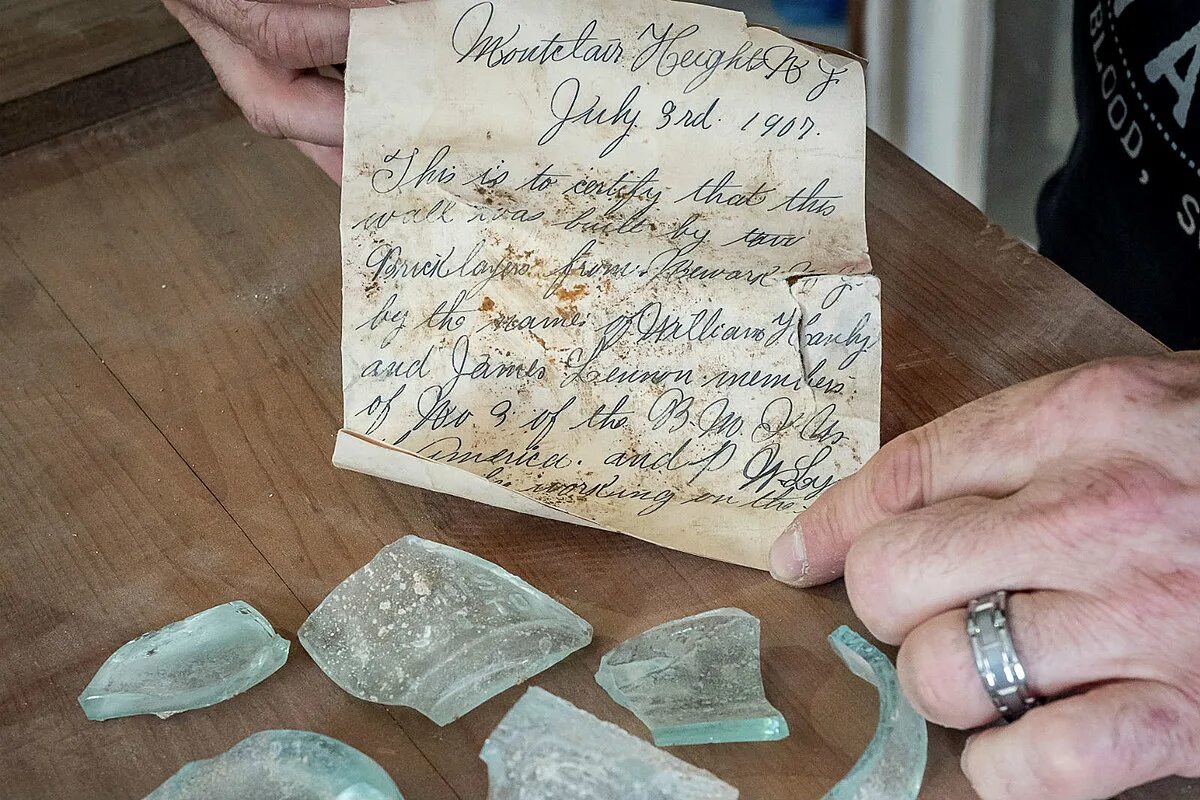 Montclair Heights N J
July 3rd. 1907.
This is to certify that this
wall was built by two
Bricklayers from Newark N J
by the names of William Hanly
and James Lennon members
of No 3 of the B. M. I. U.
America. and P
working on the
BLOOD, S